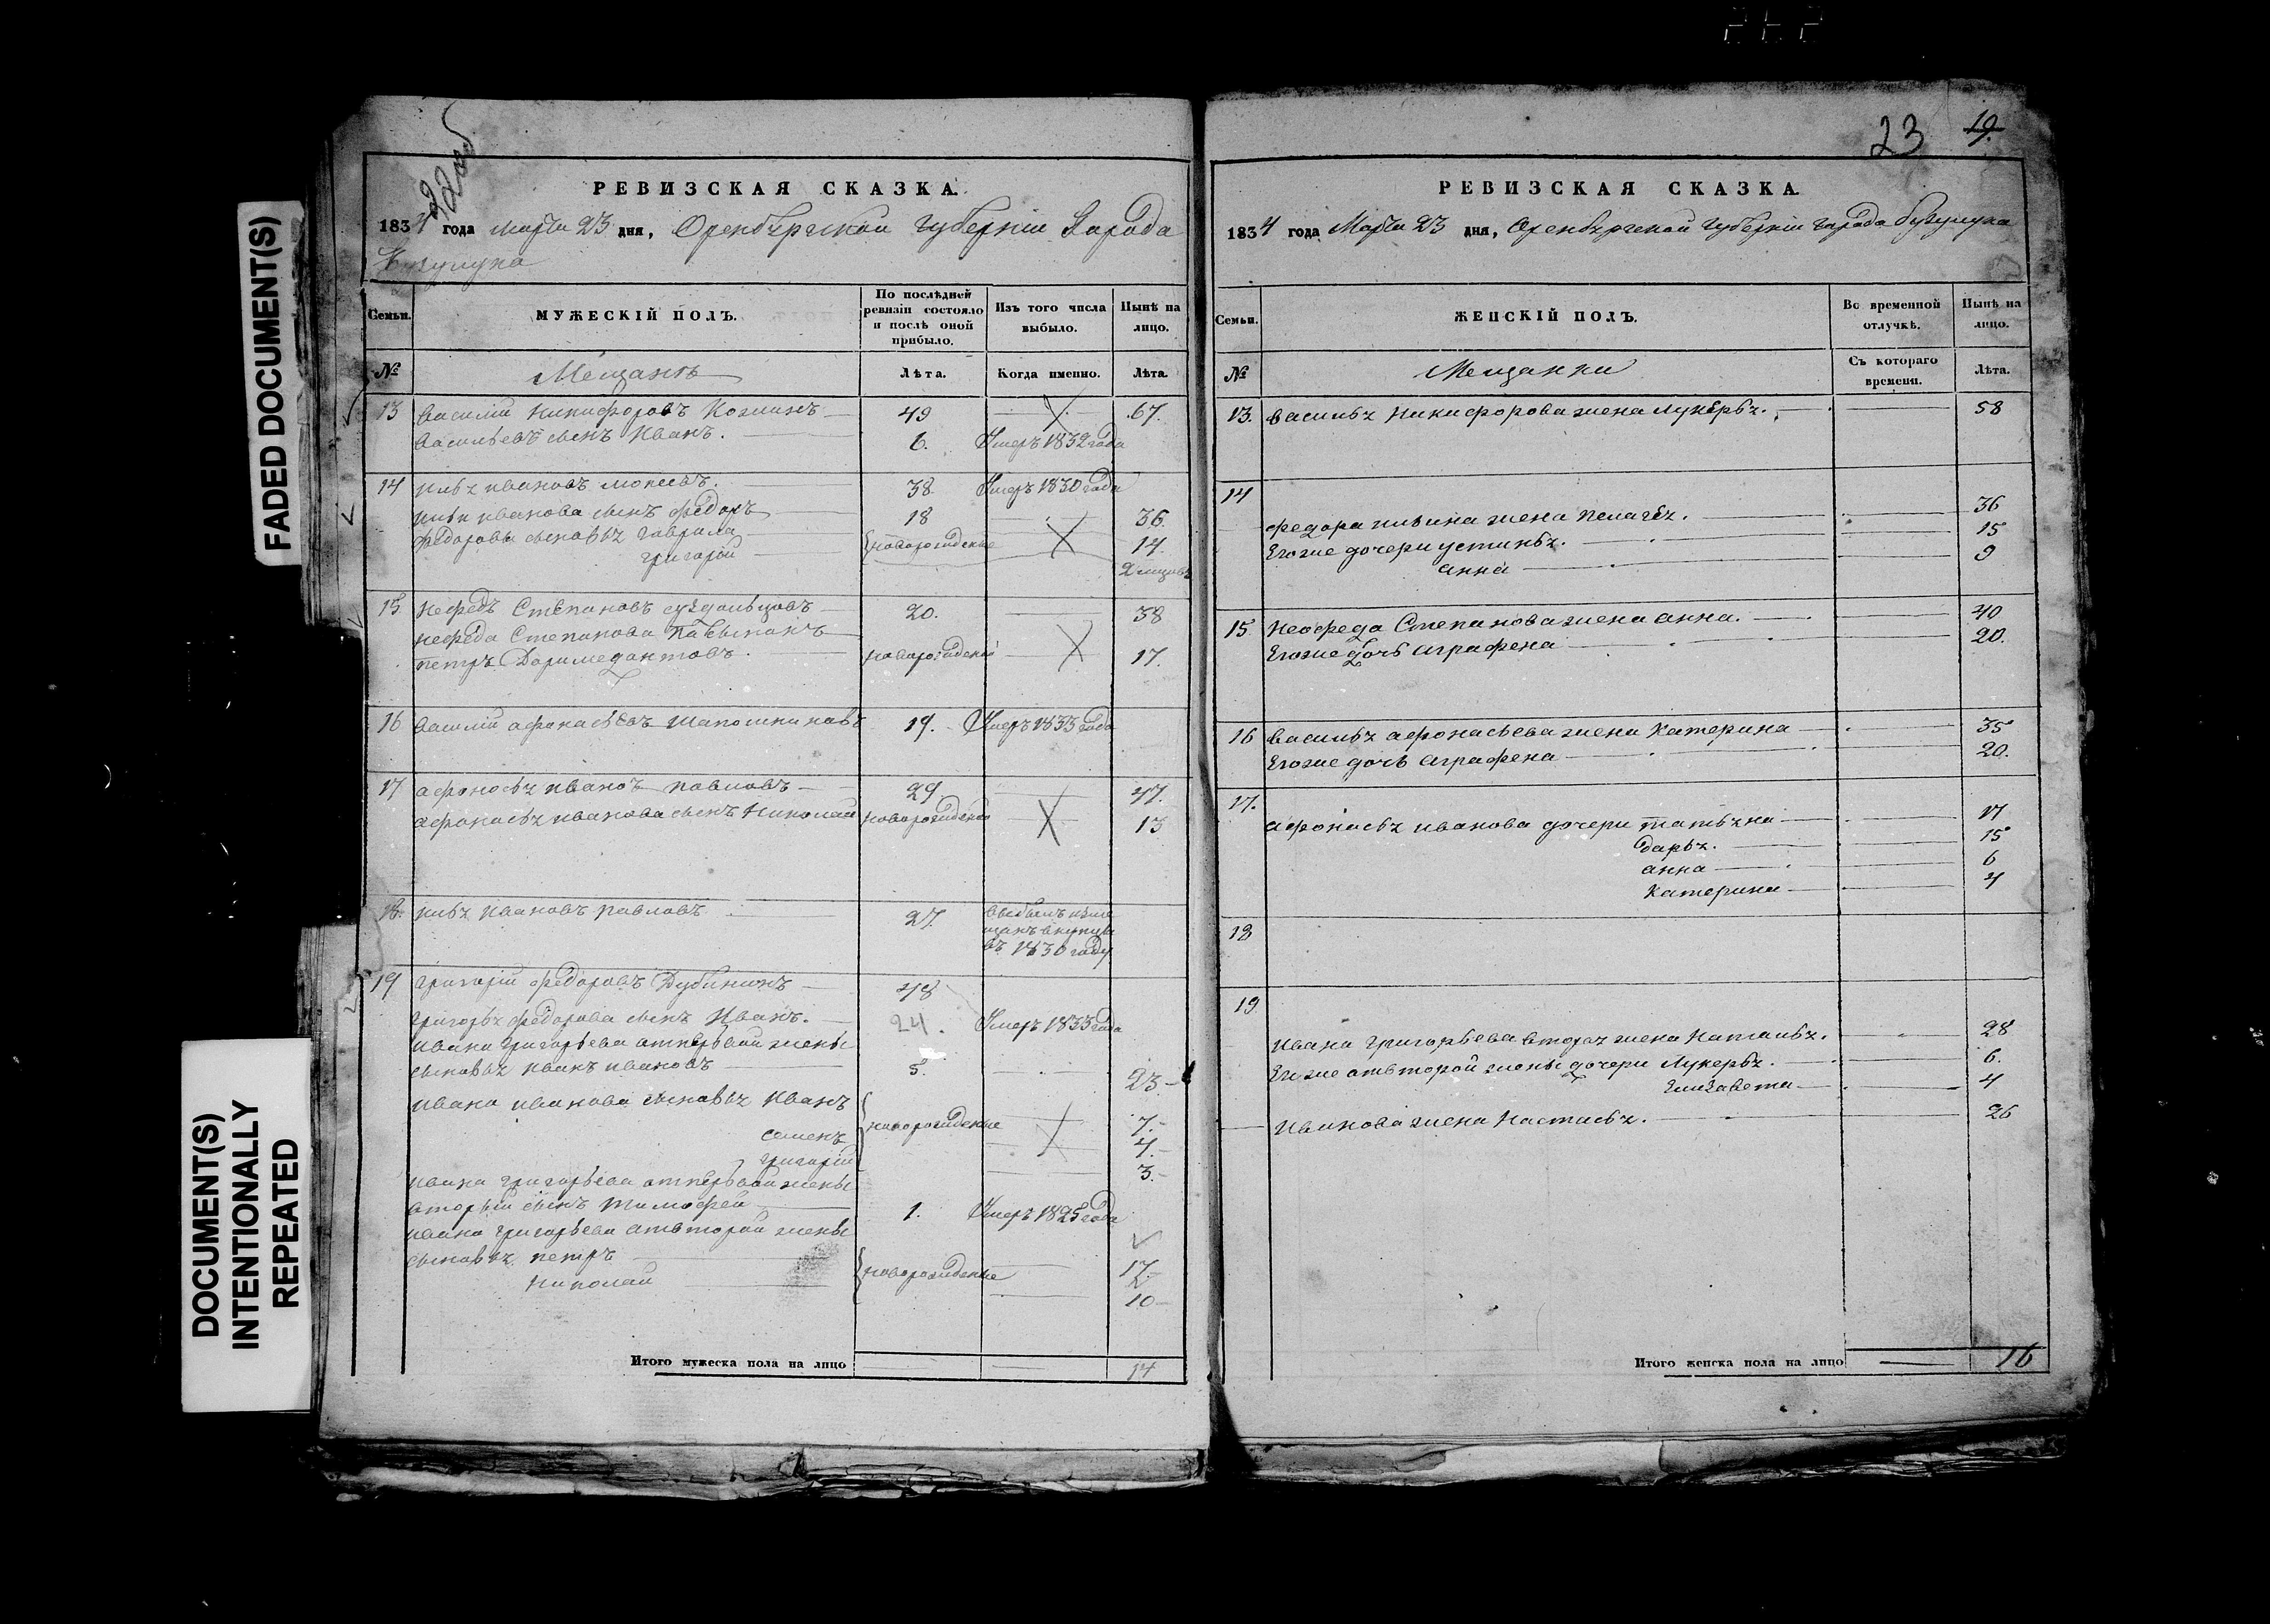 FADED DOCUMENT(S)
DOCUMENT(S)
INTENTIONALLY
REPEATED
22об
РЕВИЗСКАЯ СКАЗКА.
1834 года Марта 23 дня, Оренбургской Губернiи Города
Бузулука
Семьи.
МУЖЕСКIЙ ПОЛЪ.
По послѣдней ревизiи состояло и послѣ оной прибыло.
Изъ того числа выбыло.
Нынѣ на лицо.
№
Мещанѣ
Лѣта.
Когда именно.
Лѣта.
13 Василiй Никифоровъ 49 67.
Васильевъ сынъ Иванъ. 6. Умеръ 1832 года
14 Илья Ивановъ 38 Умеръ 1830 года
Ильи Иванова сынъ Федоръ 18 36.
Федоровы сыновья Гаврила новорожденные 14.
Григорiй
15 Нефедъ Степановъ 20. 38
Нефеда Степанова
Петръ новорожденой 17.
16 Василiй Афонасьевъ Шапошниковъ 19. Умеръ 1833 года
17 Афонасья Ивановъ Павловъ 29 47.
Афонасья Иванова сынъ Николай новорожденой 13
18. Илья Ивановъ Павловъ 27.
въ 1830 году
19 Григорiй Федоровъ Дубининъ 48
Григорья Федорова сынъ Иванъ. 24. Умеръ 1833 года
Ивана Григорьева отпервой жены
сыновья Иванъ Ивановъ 5. 23
Ивана Иванова сыновья Иванъ новорожденые 7.
Семенъ 4.
Григорiй 3.
Ивана Григорьева отпервой жены
вторый сынъ Тимофей 1. Умеръ 1825 года
Ивана Григорьева отвторой жены
сыновья Петръ новорожденые 17
Николай 10
Итого мужеска пола на лицо 14
23 19.
РЕВИЗСКАЯ СКАЗКА.
1834 года Марта 23 дня, Оренбургской Губернiи города Бузулука
Семьи.
ЖЕНСКIЙ ПОЛЪ.
Во временной отлучкѣ.
Нынѣ на лицо.
№
Мещанки
Съ котораго времени.
Лѣта.
13. Василья Никифорова жена Лукерья. 58
14
Федора Ильина жена Пелагея. 36
Егоже дочери Устинья. 15
Анна 9
15 Нефеда Степанова жена Анна. 40
Егоже дочь Аграфена 20.
16 Василья Афонасьева жена Катерина 35
Егоже дочь Аграфена 20.
17.
Афонасья Иванова дочери Татьяна 17
Дарья. 15
Анна 6
Катерина 4
18
19
Ивана Григорьева вторая жена Наталья. 28
Егоже отвторой жены дочери Лукерья. 6.
Елизавета 4
Иванова жена Настасья. 26
Итого женска пола на лицо 16